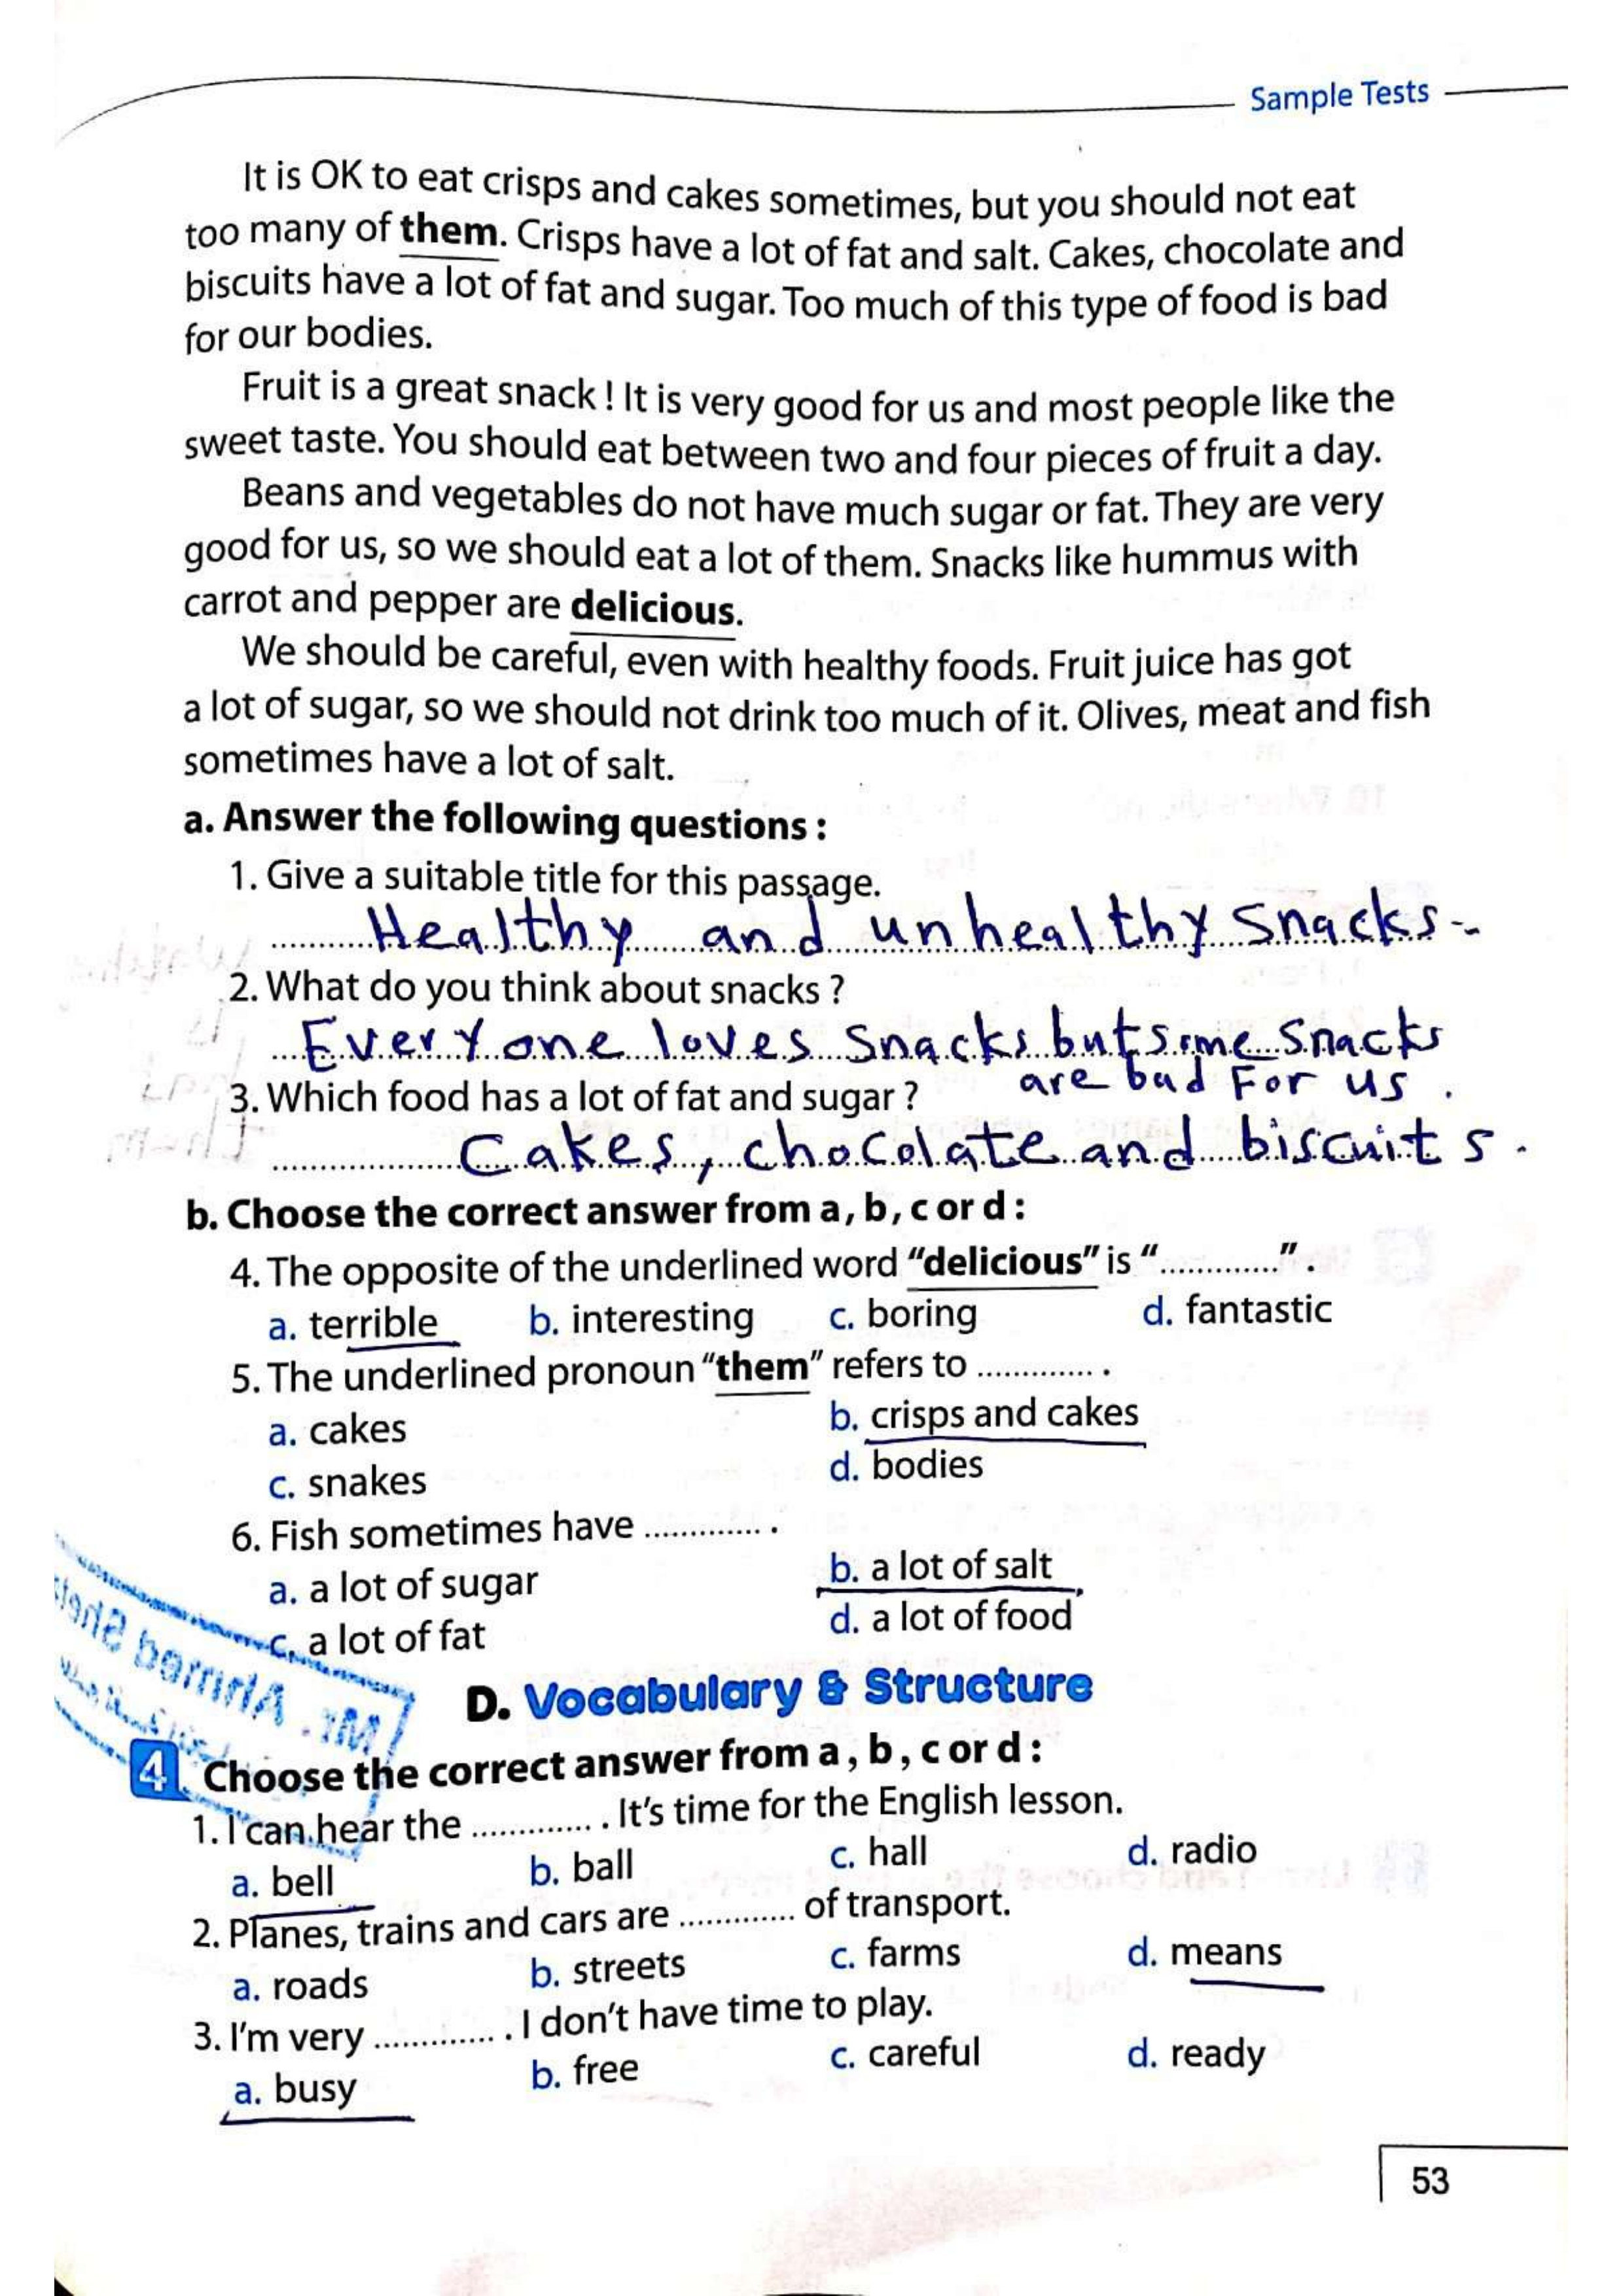 Sample Tests
It is OK to eat crisps and cakes sometimes, but you should not eat
too many of them. Crisps have a lot of fat and salt. Cakes, chocolate and
biscuits have a lot of fat and sugar. Too much of this type of food is bad
for our bodies.
Fruit is a great snack ! It is very good for us and most people like the
sweet taste. You should eat between two and four pieces of fruit a day.
Beans and vegetables do not have much sugar or fat. They are very
good for us, so we should eat a lot of them. Snacks like hummus with
carrot and pepper are delicious.
We should be careful, even with healthy foods. Fruit juice has got
a lot of sugar, so we should not drink too much of it. Olives, meat and fish
sometimes have a lot of salt.
a. Answer the following questions :
1. Give a suitable title for this passage.
Healthy and unhealthy Snacks-
2. What do you think about snacks ?
Everyone loves Snacks but some Snacks
are bad For us .
3. Which food has a lot of fat and sugar ?
Cakes, chocolate and biscuits.
b. Choose the correct answer from a, b, c or d :
4. The opposite of the underlined word "delicious" is "............." .
a. terrible b. interesting c. boring d. fantastic
5. The underlined pronoun "them" refers to ............. .
a. cakes b. crisps and cakes
c. snakes d. bodies
6. Fish sometimes have ............. .
a. a lot of sugar b. a lot of salt
c. a lot of fat d. a lot of food
Mr. Ahmed
D. Vocabulary & Structure
4 Choose the correct answer from a, b, c or d :
1. I can hear the ............. . It's time for the English lesson.
a. bell b. ball c. hall d. radio
2. Planes, trains and cars are ............. of transport.
a. roads b. streets c. farms d. means
3. I'm very ............. . I don't have time to play.
a. busy b. free c. careful d. ready
53